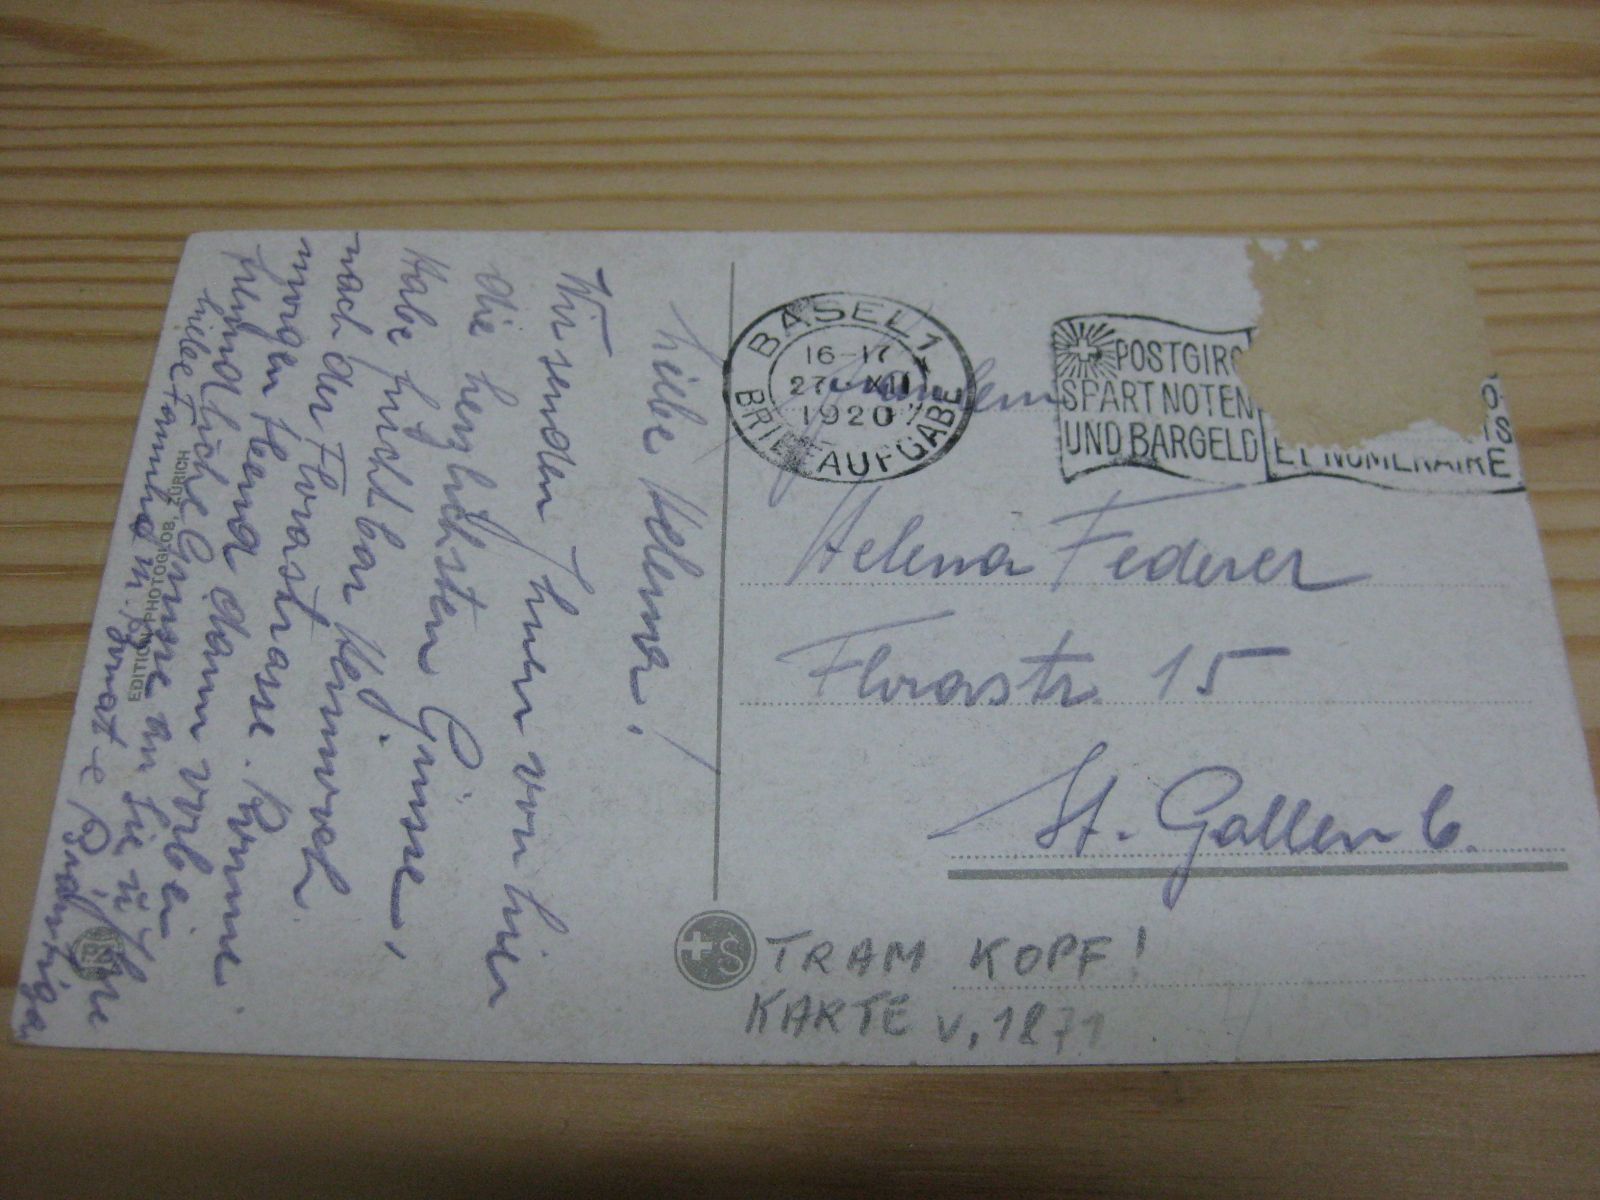 Liebe Helena!
Wir senden Ihnen von hier
die herzlichsten Grüsse,
Habe furchtbar Heimweh
nach der Florastrasse. Komme
morgen Abend dann vorbei
freundliche Grüsse an Sie u. Ihre
liebe Familie
EDITION PHOTOGLOB, ZÜRICH
BASEL 1
16-17
27. XII
1920
BRIEFAUFGABE
POSTGIRO
SPART NOTEN
UND BARGELD
ET NUMERAIRE
Fräulein
Helena Federer
Florastr. 15
St. Gallen 6.
S
TRAM KOPF!
KARTE v. 1871